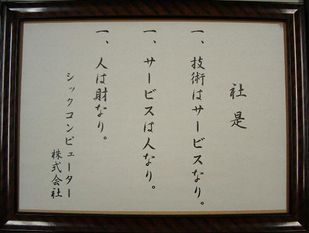 社是
一、技術はサービスなり。
一、サービスは人なり。
一、人は財なり。
シックコンピューター
株式会社